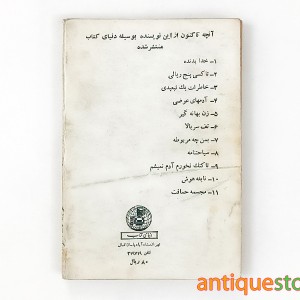 آنچه تاکنون از این نویسنده بوسیله دنیای کتاب
منتشر شده
۱- خدا بدنده
۲- تاکسی پنج ریالی
۳- خاطرات یک تبعیدی
۴- آدمهای عوضی
۵- زن بهانه گیر
۶- تف سربالا
۷- بمن چه مربوطه
۸- سیاحتنامه
۹- تا کتک نخورم آدم نمیشم
۱۰- نابغه هوش
۱۱- مجسمه حماقت
دنیای کتاب
۸۰ ریال
antiquesto